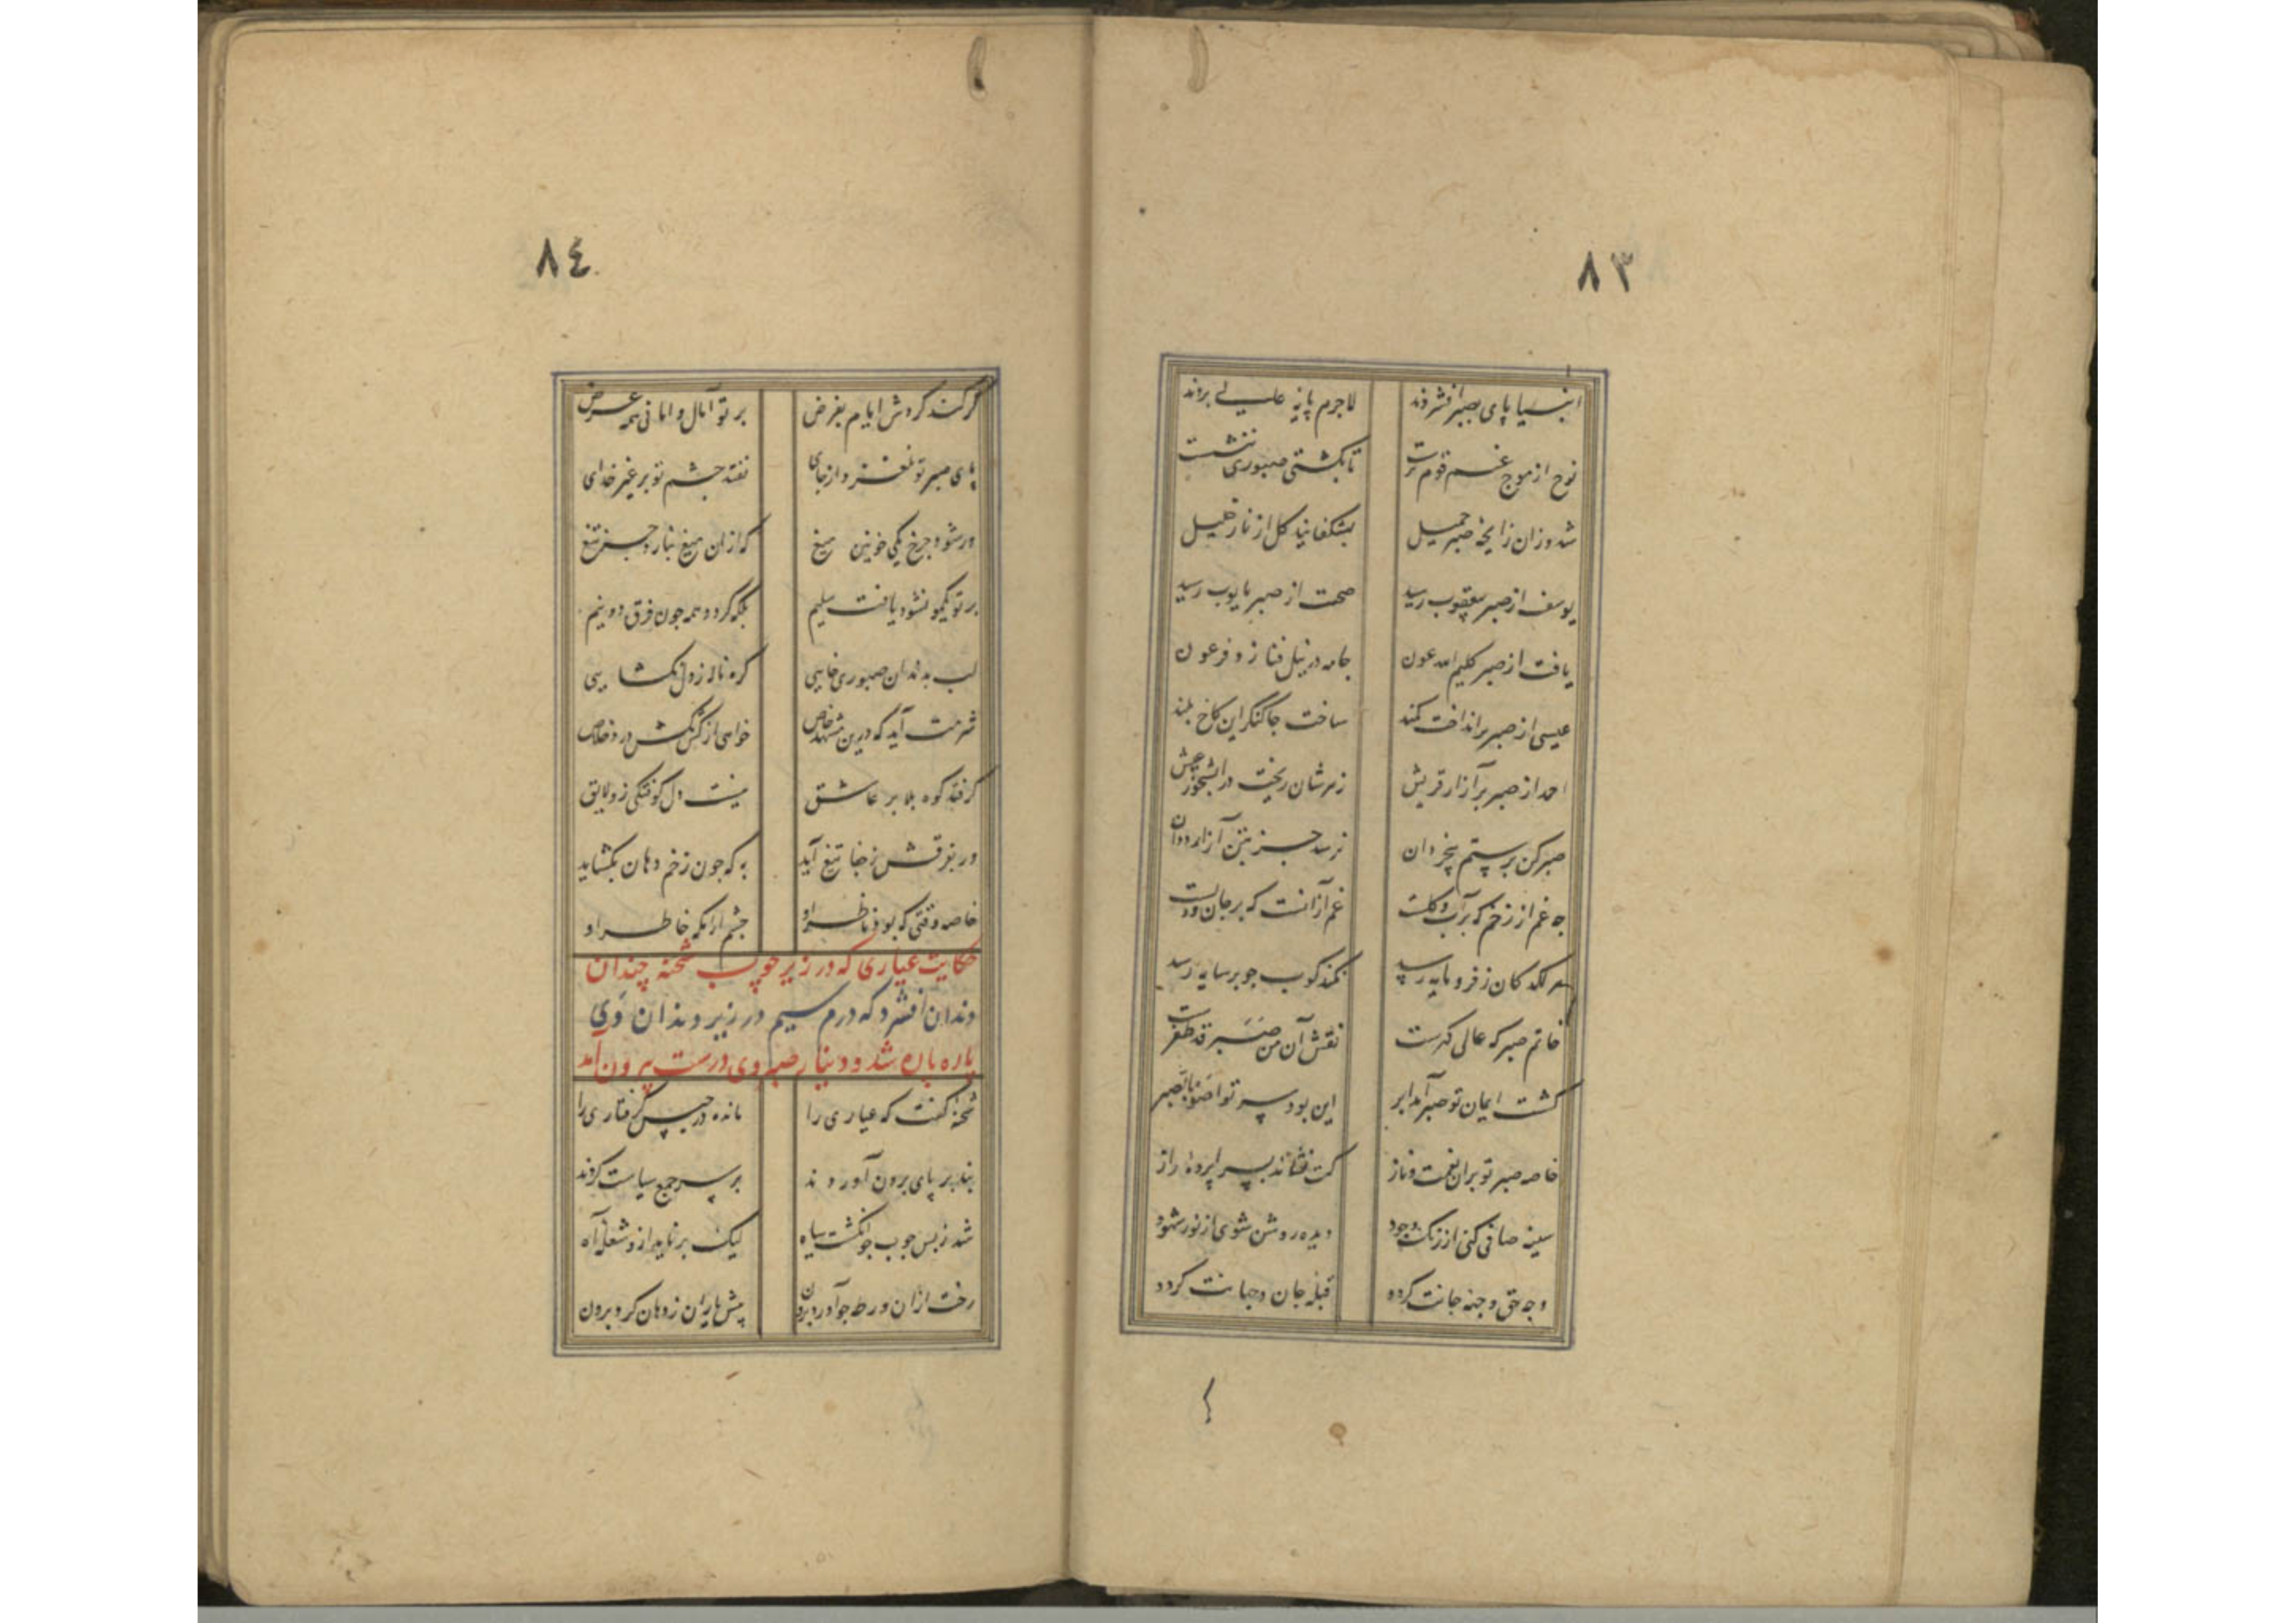 ٨٣
انبیا پای بصبر افشردند لاجرم پایه علیی بردند
نوح از موج غم قوم برست تا بکشتی صبوری ننشست
شد وزان زایحهٔ صبر جمیل بشکفانید کل از نار خلیل
یوسف از صبر بیعقوب رسید صحت از صبر بایوب رسید
یافت از صبر کلیم الله عون جامه در نیل فنا زد فرعون
عیسی از صبر برانداخت کمند ساخت جا کنکر این کاخ بلند
احمد از صبر بر آزار قریش زهرشان ریخت در آبشخور عیش
صبر کن بر ستم بیخردان نرسد جز بتن آزار ددان
چه غم از زخم که بر آب و کلست غم ازانست که بر جان و دلست
هر لکد کان ز فرومایه رسد نکند کوب چو بر سایه رسد
خاتم صبر که عالی کهرست نقش آن من صبر قد ظفرست
کشت ایمان تو صبر آمد ابر این بود سر تواصوا بالصبر
خاصه صبر تو بران نعمت و ناز کت نشاند بسراپردهٔ راز
سینه صافی کنی از زنک وجود دیده روشن شوی از نور شهود
وجه حق وجهه جانت کردد قبله جان و جهانت کردد
٨٤
کر کند کردش ایام بغرض بر تو آمال و امانی همه عرض
پای صبر تو نلغزد از جای نفتد چشم تو بر غیر خدای
ور شود چرخ یکی خونین میغ که ازان میغ نبارد جز تیغ
بر تو یکمو نشود یافت سلیم بلکه کردد همه چون فرق دو نیم
لب بدندان صبوری خایی کره ناله ز دل نکشایی
شرمت آید که درین مشهد خاص خواهی از کشمکش درد خلاص
کر فتد کوه بلا بر عاشق نیست دل کوفتکی زو لایق
ور بفرقش ز جفا تیغ آید به که چون زخم دهان بکشاید
خاصه وقتی که بود ناظر او چشم آرامکه خاطر او
حکایت عیاری که در زیر چوب شحنه چندان
دندان افشرد که درم سیم در زیر دندان وی
پاره پاره شد و دینار صبر وی درست بیرون آمد
شحنهٔ کفت که عیاری را مانده در حبس کرفتاری را
بند بر پای برون آوردند بر سر جمع سیاست کردند
شد ز بس چوب چو انکشت سیاه لیک بر نامد ازو شعلهٔ آه
رخت ازان ورطه چو آورد برون پیش یاران ز دهان کرد برون